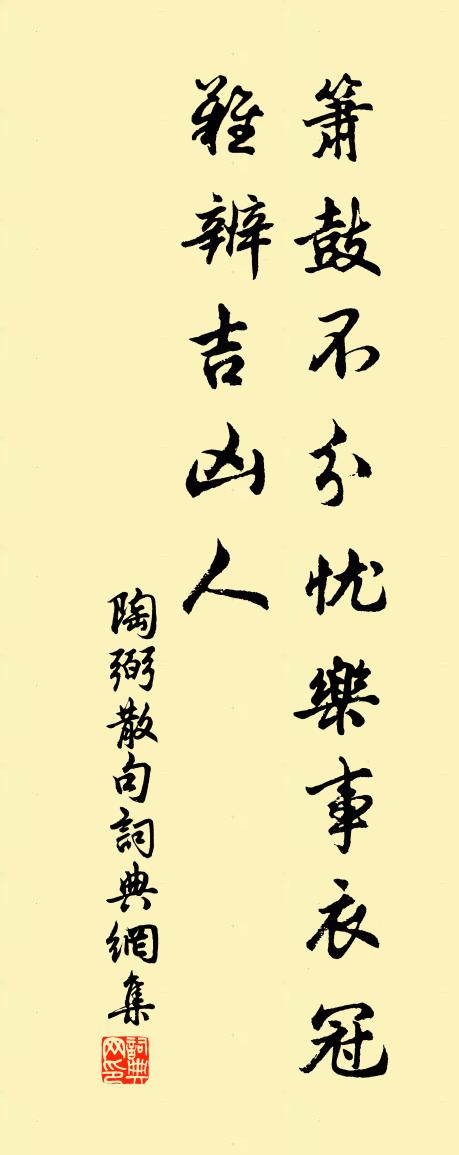 簫鼓不分忧樂事衣冠
難辨吉凶人
陶弼散句詞典網集
詞典网印